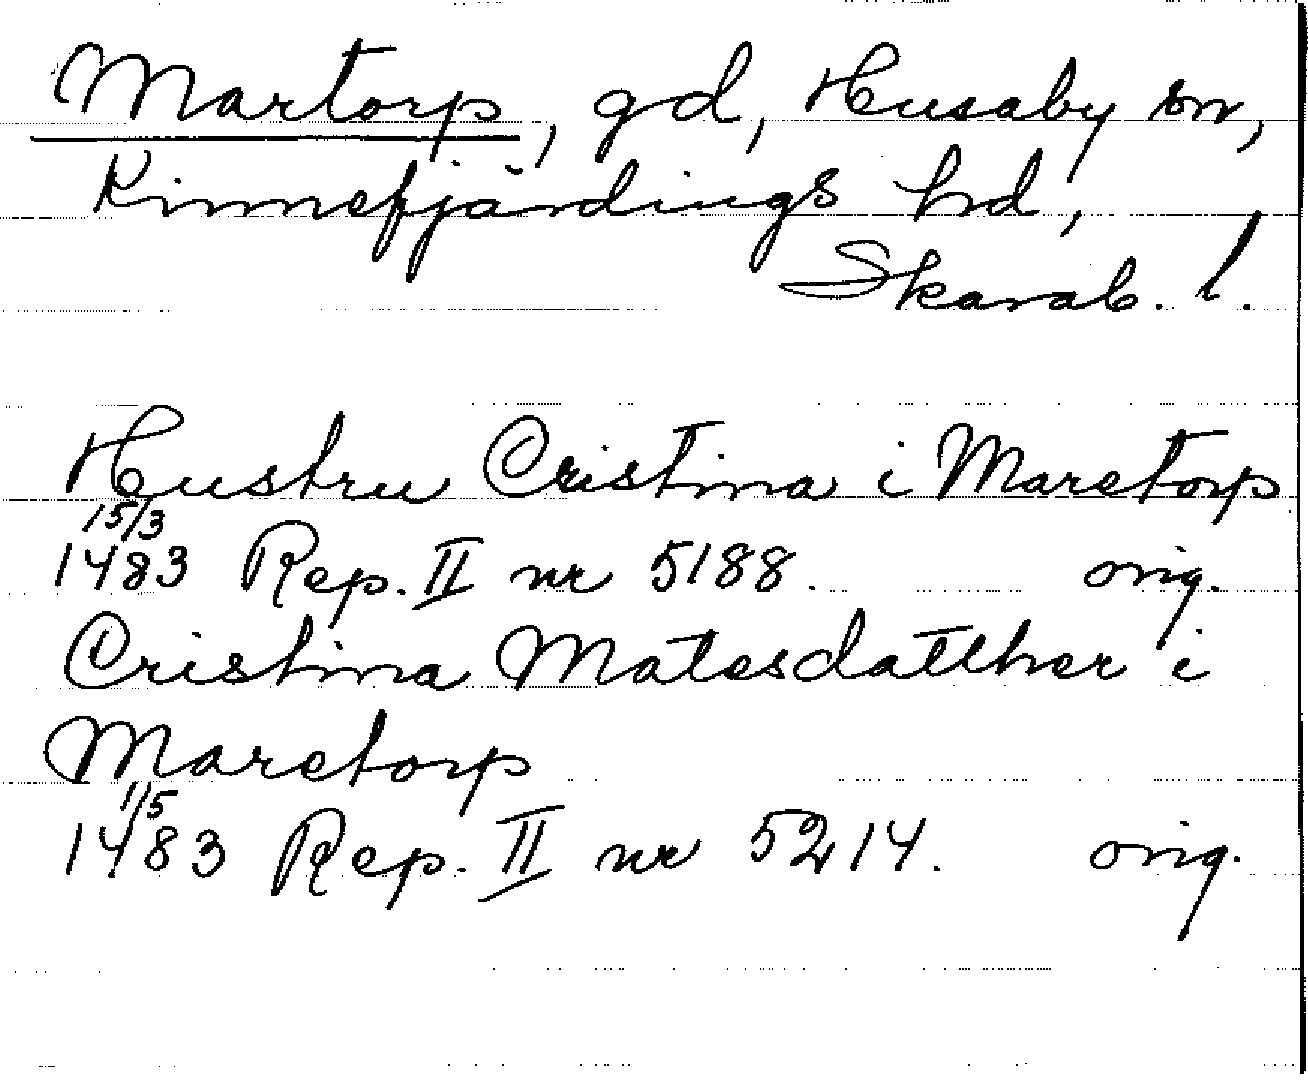 Martorp, gd, Husaby sn,
Kinnefjärdings hd,
Skarab. l.
Hustru Cristina i Maretorp
15/3
1483 Rep. II nr 5188. orig.
Cristina Matesdatther i
Maretorp
1/5
1483 Rep. II nr 5214. orig.